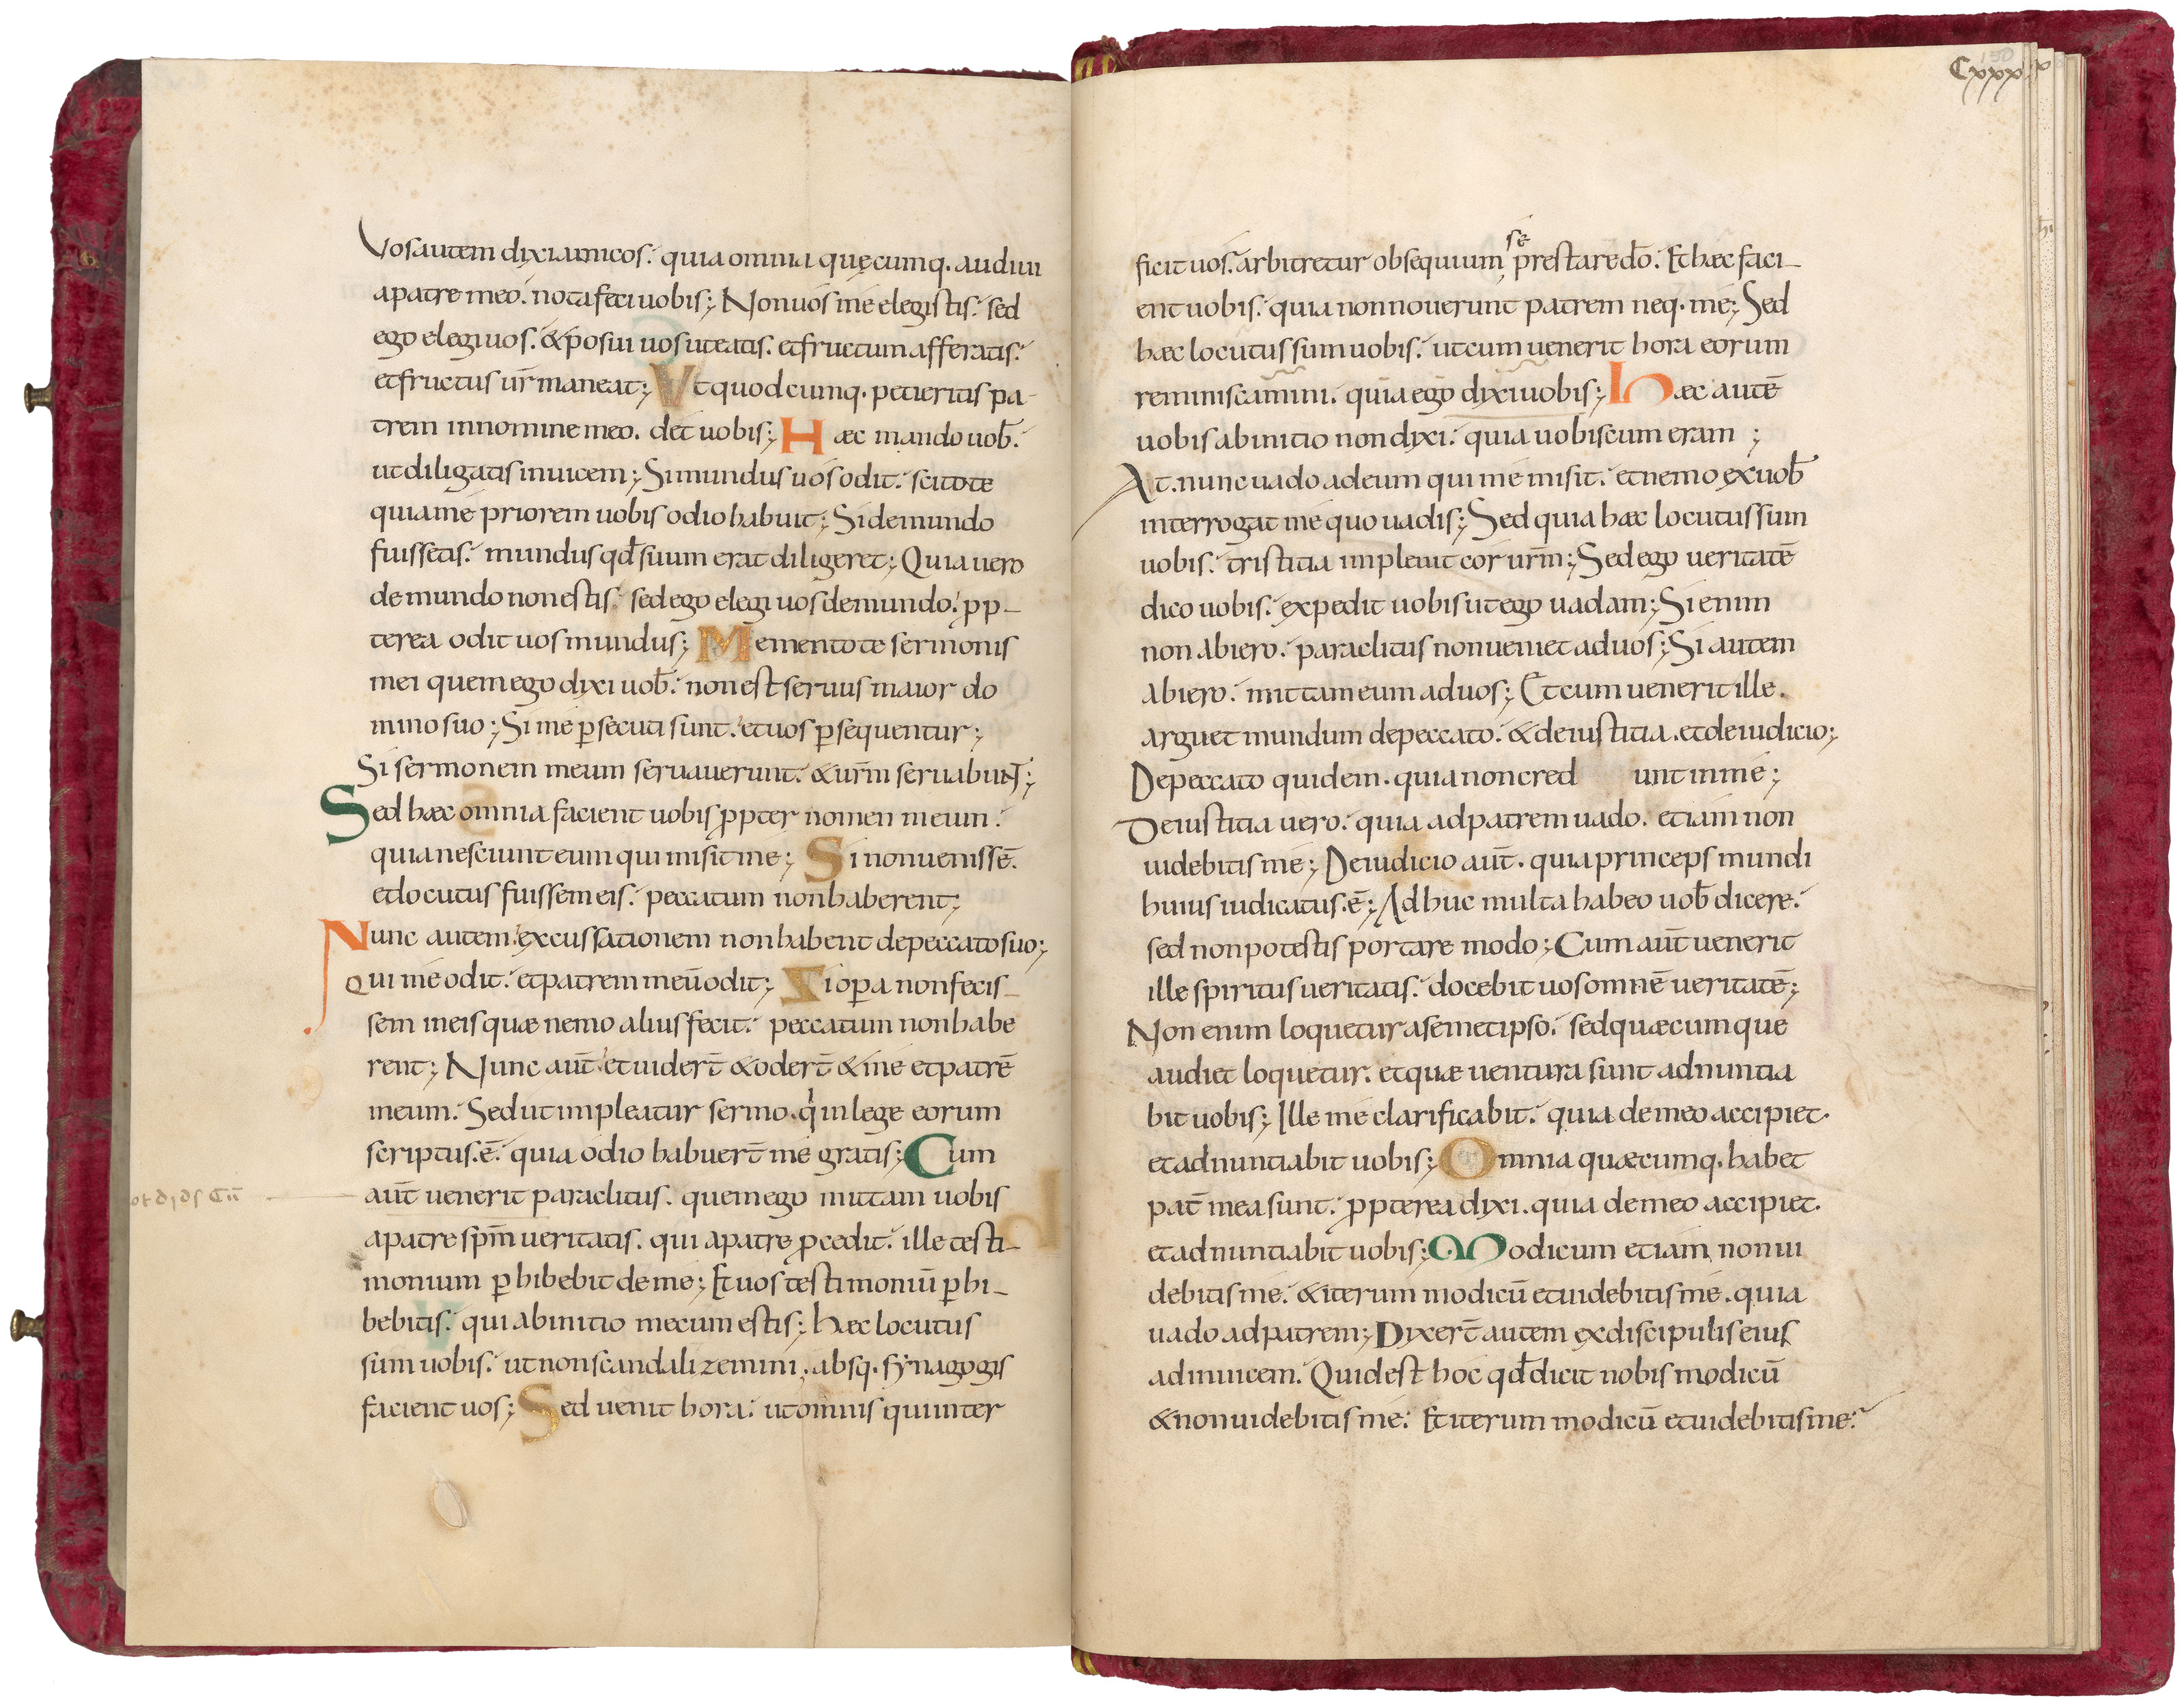 Vos autem dixi amicos. quia omnia quęcumq. audiui
a patre meo. nota feci uobis; Non uos me elegistis. sed
ego elegi uos. & posui uos ut eatis. et fructum afferatis.
et fructus ur̄ maneat; Vt quodcumq. petieritis pa-
trem in nomine meo. det uobis; Haec mando uob̄.
ut diligatis inuicem; Si mundus uos odit. scitote
quia me priorem uobis odio habuit; Si de mundo
fuissetis. mundus qd̄ suum erat diligeret; Quia uero
de mundo non estis. sed ego elegi uos de mundo. ꝓp-
terea odit uos mundus; Mementote sermonis
mei quem ego dixi uob̄. non est seruus maior do
mino suo; Si me ꝑsecuti sunt. et uos ꝑsequentur;
Si sermonem meum seruauerunt. & ur̄m seruabunt;
Sed haec omnia facient uobis ꝓpter nomen meum.
quia nesciunt eum qui misit me; Si non uenissē.
et locutus fuissem eis. peccatum non haberent;
Nunc autem excussationem non habent de peccato suo;
Qui me odit. et patrem meū odit; Si oꝑa non fecis-
sem in eis quae nemo alius fecit. peccatum non habe
rent; Nunc aūt et uidert̄ & odert̄ & me et patrē
meum. Sed ut impleatur sermo. qⁱ in lege eorum
scriptus. ē. quia odio habuert̄ me gratis; Cum
aūt uenerit paraclitus. quem ego mittam uobis
a patre sp̄m ueritatis. qui a patre ꝓcedit. ille testi-
monium ꝑhibebit de me; Et uos testimoniū ꝑhi-
bebitis. qui ab initio mecum estis; Haec locutus
sum uobis. ut non scandalizemini. absq. synagogis
facient uos; Sed uenit hora. ut omnis qui inter
Cxxx
se
ficit uos. arbitretur obsequium prestare dō. Et haec faci-
ent uobis. quia non nouerunt patrem neq. me; Sed
haec locutus sum uobis. ut cum uenerit hora eorum
reminiscamini. quia ego dixi uobis; Haec autē
uobis ab initio non dixi. quia uobiscum eram;
At. nunc uado ad eum qui me misit. et nemo ex uob̄
interrogat me quo uadis; Sed quia haec locutus sum
uobis. tristitia impleuit cor ur̄m; Sed ego ueritatē
dico uobis. expedit uobis ut ego uadam; Si enim
non abiero. paraclitus non ueniet ad uos; Si autem
abiero. mittam eum ad uos; Et cum uenerit ille.
arguet mundum de peccato. & de iustitia. et de iudicio;
De peccato quidem. quia non cred unt in me;
De iustitia uero. quia ad patrem uado. et iam non
uidebitis me; De iudicio aūt. quia princeps mundi
huius iudicatus. ē; Adhuc multa habeo uob̄ dicere.
sed non potestis portare modo; Cum aūt uenerit
ille spiritus ueritatis. docebit uos omnē ueritatē;
Non enim loquetur a semetipso. sed quaecumque
audiet loquetur. et quae uentura sunt adnuntia
bit uobis; Ille me clarificabit. quia de meo accipiet.
et adnuntiabit uobis; Omnia quaecumq. habet
pat̄ mea sunt. ꝓpterea dixi. quia de meo accipiet.
et adnuntiabit uobis; Modicum et iam non ui
debitis me. & iterum modicū et uidebitis me. quia
uado ad patrem; Dixert̄ autem ex discipulis eius
ad inuicem. Quid est hoc qd̄ dicit nobis modicū
& non uidebitis me. Et iterum modicū et uidebitis me.